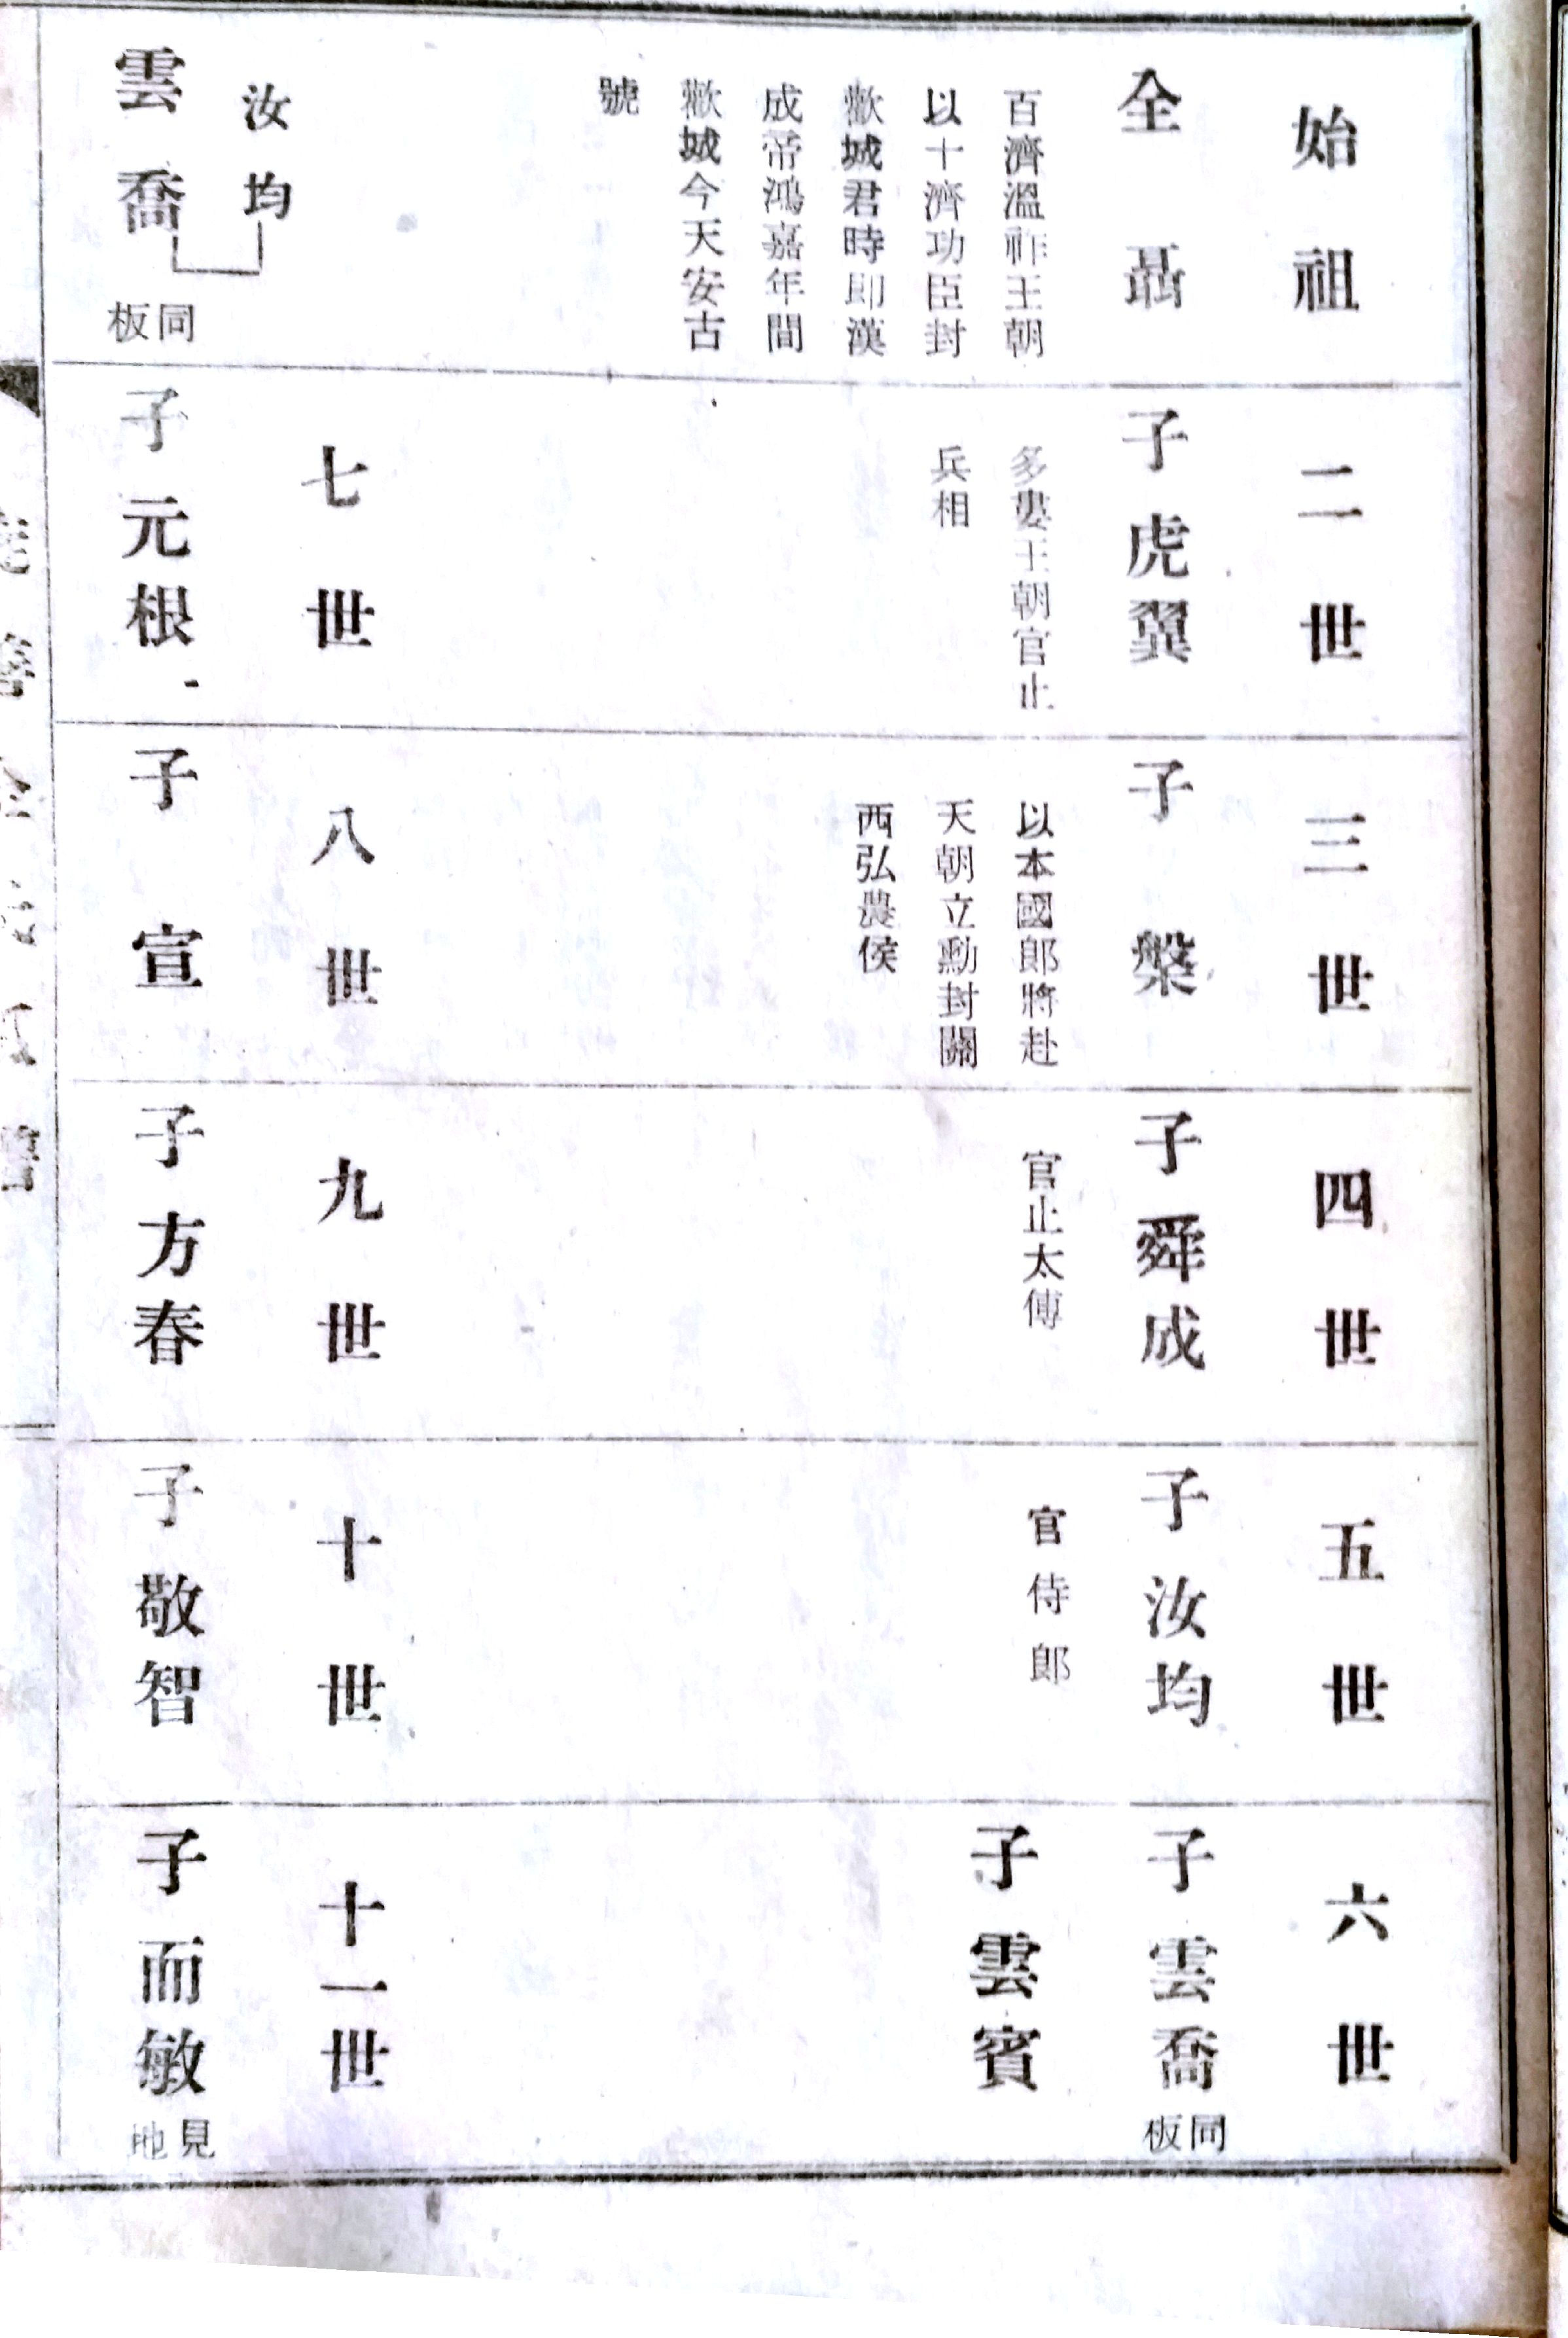 始祖
全聶
百濟溫祚王朝
以十濟功臣封
歡城君時卽漢
成帝鴻嘉年間
歡城今天安古
號
二世
子虎翼
多婁王朝官止
兵相
三世
子槃
以本國郎將赴
天朝立勳封關
西弘農侯
四世
子舜成
官止太傅
五世
子汝均
官侍郎
六世
子雲喬
同板
子雲賓
汝均
雲喬
同板
七世
子元根
八世
子宣
九世
子方春
十世
子敬智
十一世
子而敏
見地